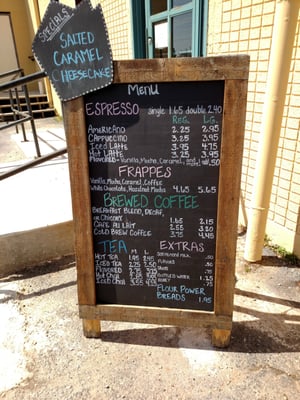 SPECIALS
SALTED
CARAMEL
CHEESECAKE
Menu
ESPRESSO single 1.65 double 2.40
REG. LG.
AMERICANO 2.25 2.95
CAPPUCCINO 3.25 3.95
ICED LATTE 3.95 4.75
HOT LATTE 3.25 3.95
FLAVORED - Vanilla, Mocha, Caramel, .50
FRAPPES
Vanilla, Mocha, Caramel, Coffee
White Chocolate, Hazelnut Mocha 4.65 5.65
BREWED COFFEE
BREAKFAST BLEND, DECAF,
or CHICORY 1.65 2.15
CAFE AU LAIT 2.55 3.20
COLD BREW COFFEE 3.75 4.45
TEA M L
HOT TEA 1.95 2.45
ICED TEA
FLAVORED
HOT CHAI
ICED CHAI
EXTRAS
FLAVORS
BOTTLED WATER
FLOUR POWER
BREADS 1.95